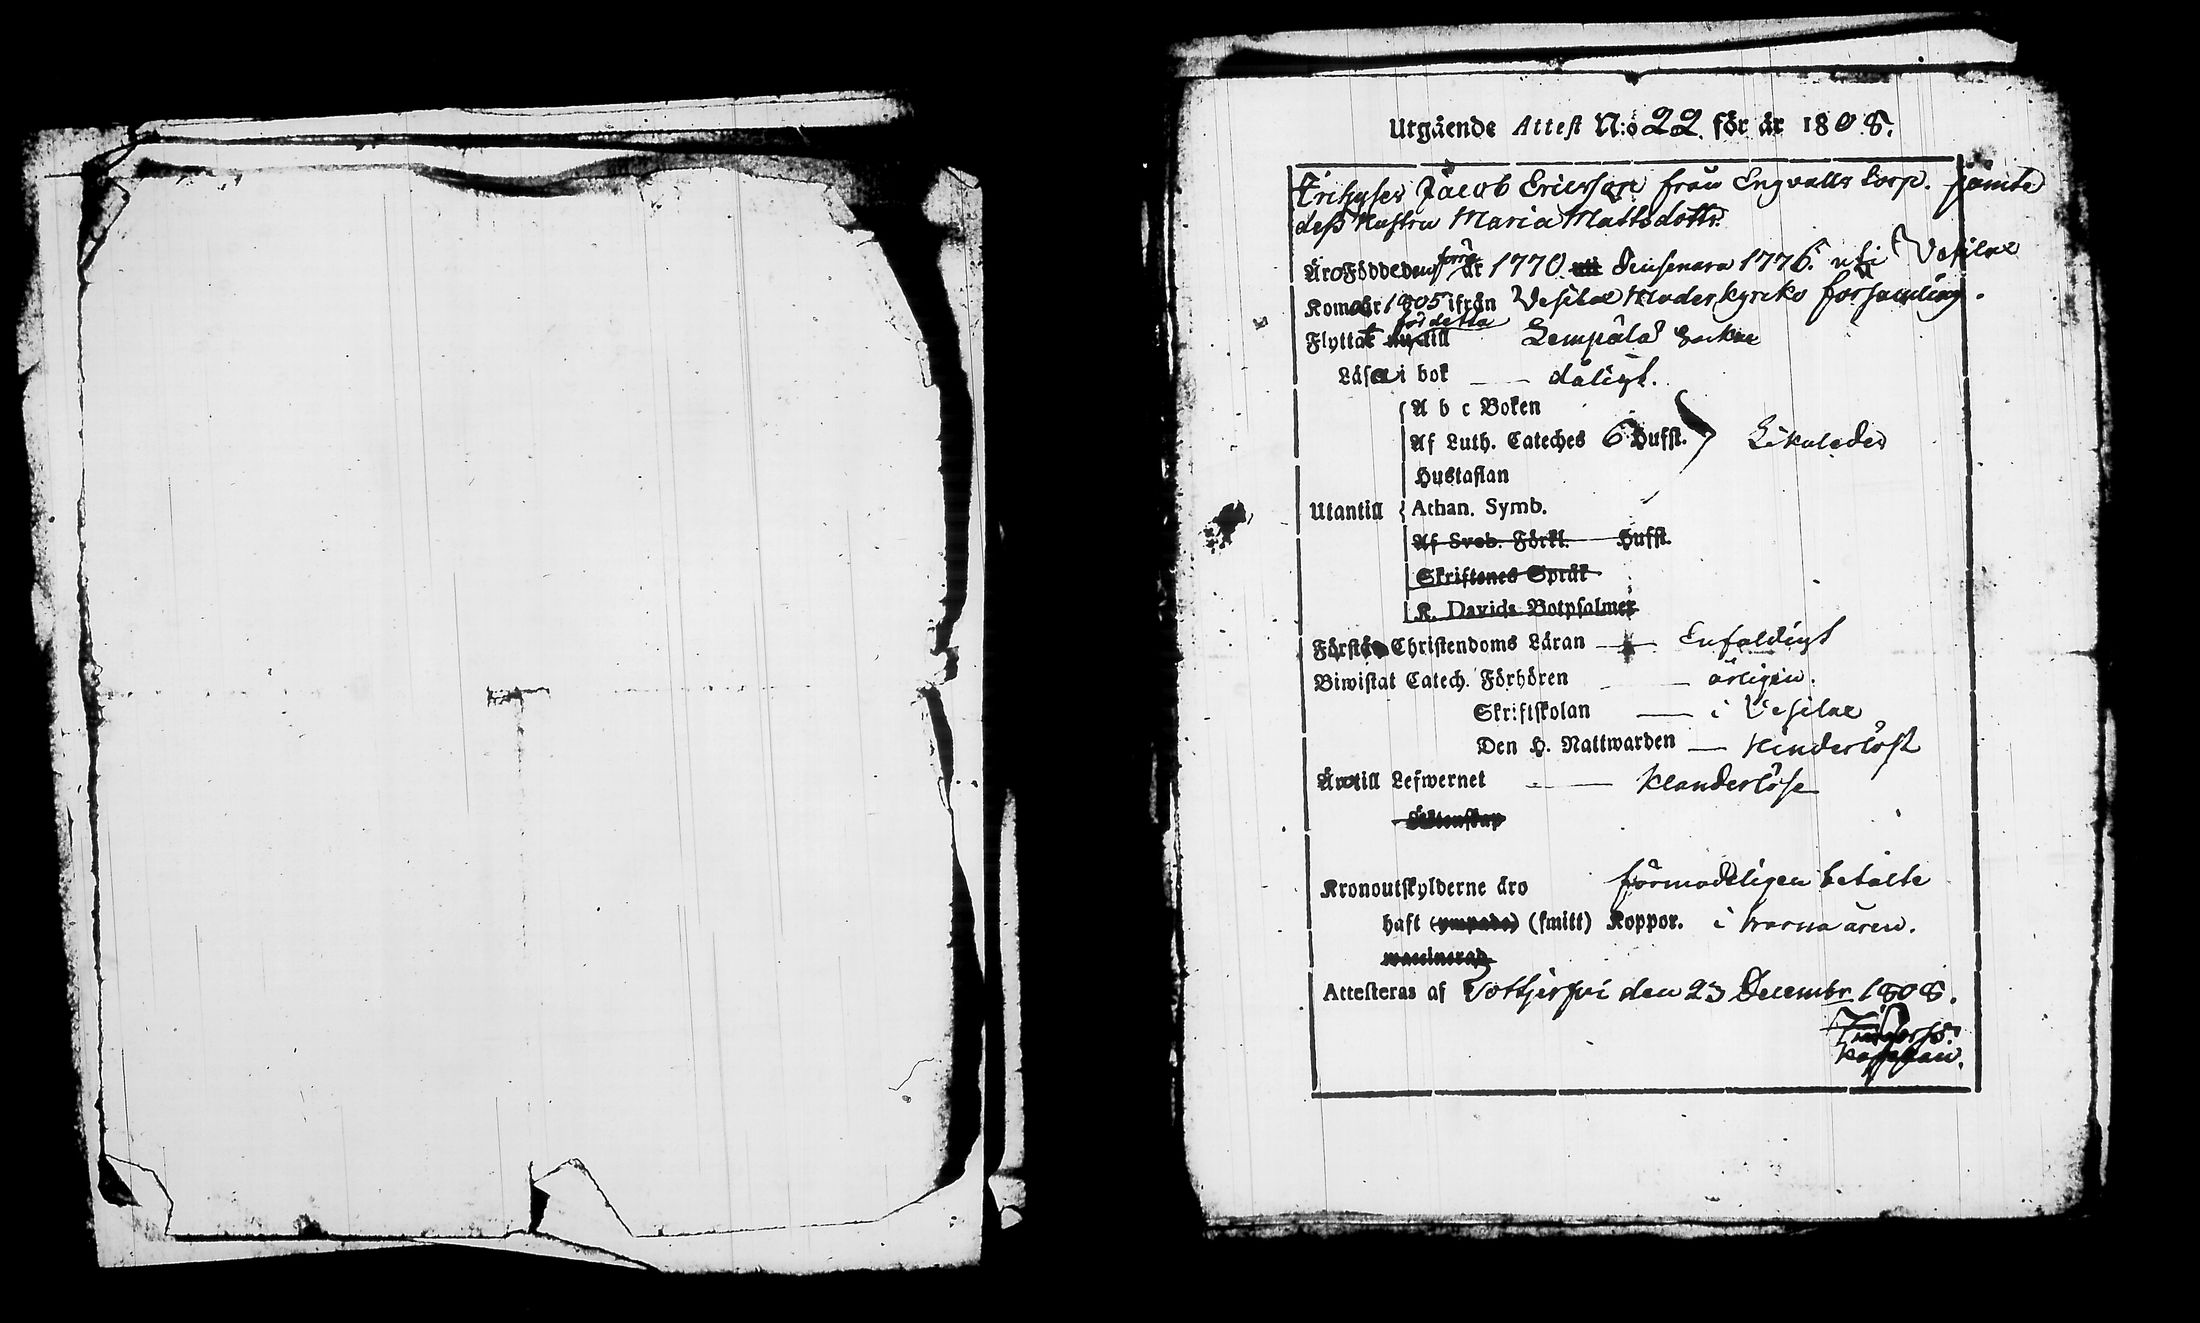 Utgående Attest N:o 22. för år 1808.
Jacob Ericsson från Engvalls torp. jämte
dess Hustru Maria Mattsdotter.
Äro Födde den förra år 1770 uti den senare 1776. uti Vesilax
Komo år 1805 ifrån Vesilax Moderkyrko församling.
Flyttat nu till för detta Lempälä Sockn
Läsa i bok — dåligt.
A b c Boken
Af Luth. Cateches 6 Hufst. Likaledes
Hustaflan
Utantill Athan. Symb.
Af Sveb. Förkl. Hufst.
Skriftenes Språk
K. Davids Botpsalmer
Förstå Christendoms Läran — Enfaldigt
Biwistat Catech. Förhören — årligen.
Skriftskolan — i Vesilax
Den H. Nattwarden — hinderlöst
Äro till Lefwernet — klanderlöse
Äktenskap
Kronoutskylderne äro förmodeligen betalte
haft (ympade) (smitt) Koppor. i barna åren.
waccinerad
Attesteras af Tottjerfvi den 23 Decembr 1808.
Kapellan.